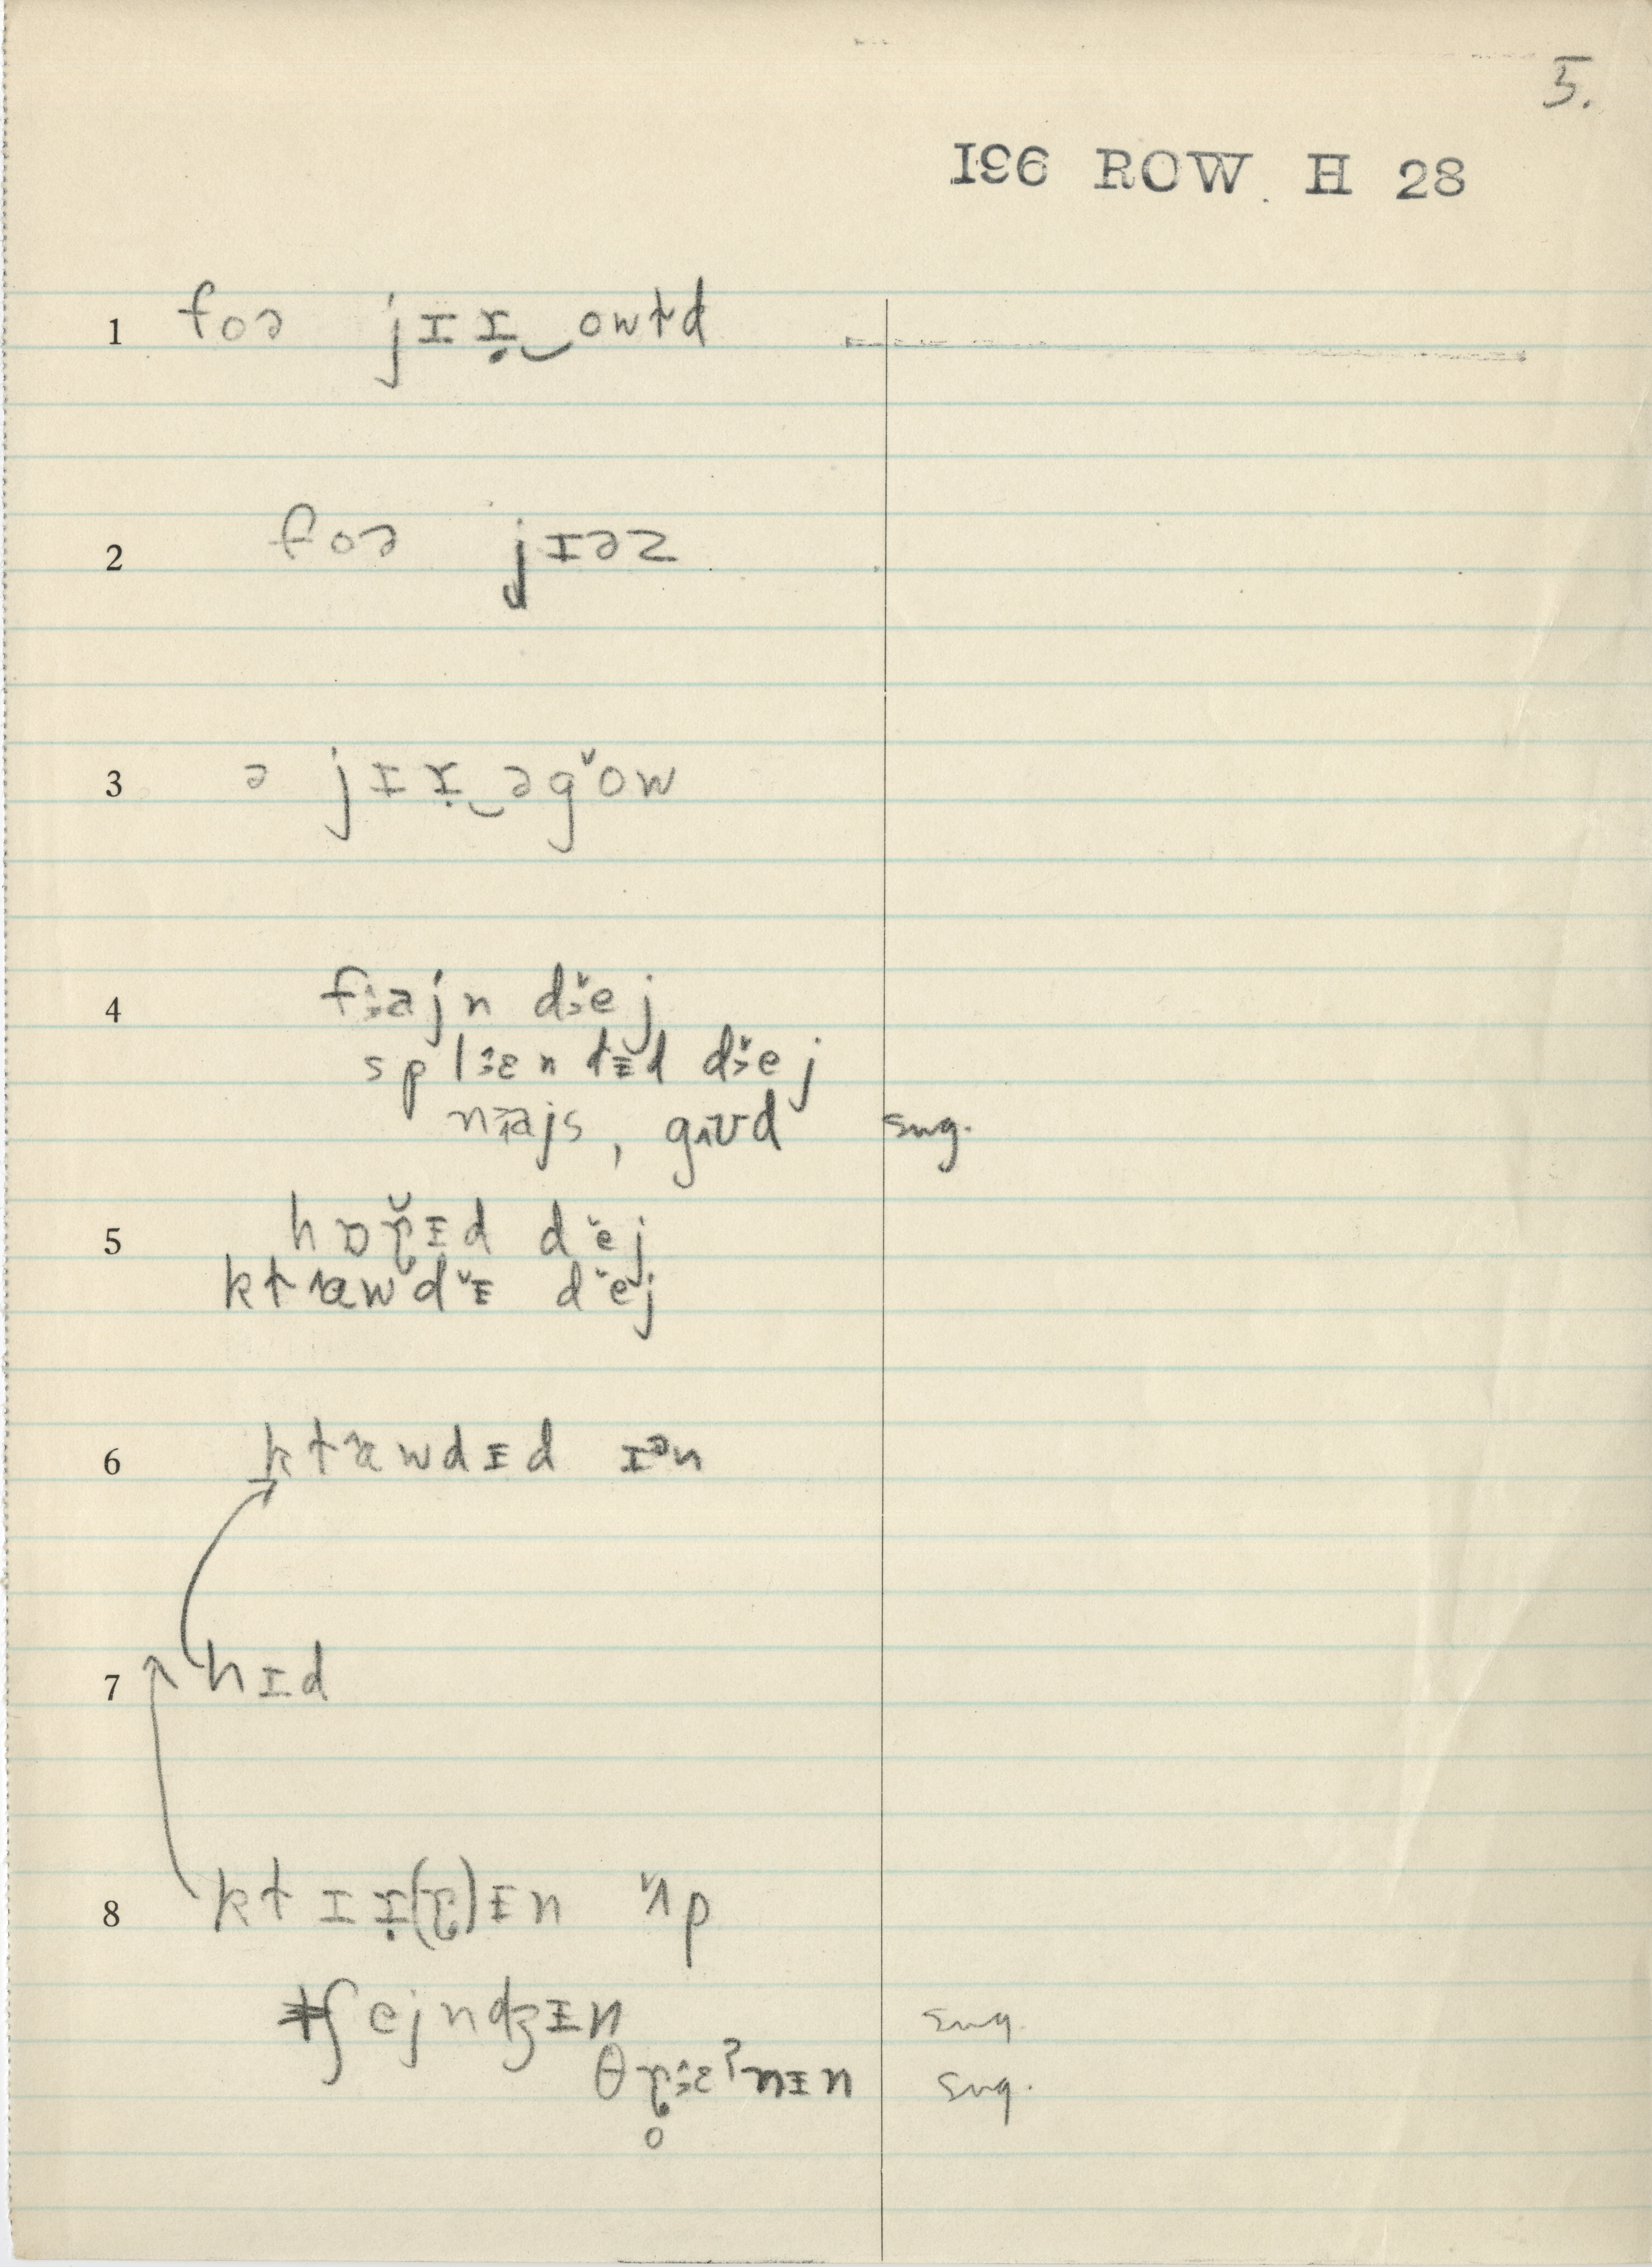 5.
196 ROW H 28
1 foə jɪɪ̣‿owɫd
2 foə jɪəz
3 ə jɪɪ̣‿əgˇow
4 f˰ajn dˇej
splɛndɪd dˇej
najs, gʊd sug.
5 hɒɽɪd dˇej
kɫawdˇɪ dˇej
6 kɫawdɪd ɪᵊn
7 hɪd
8 kɫɪɪ̣(ɽ)ɪn ˇʌp
ʃejndʒɪn sug.
θɽ̥ɛʔnɪn sug.